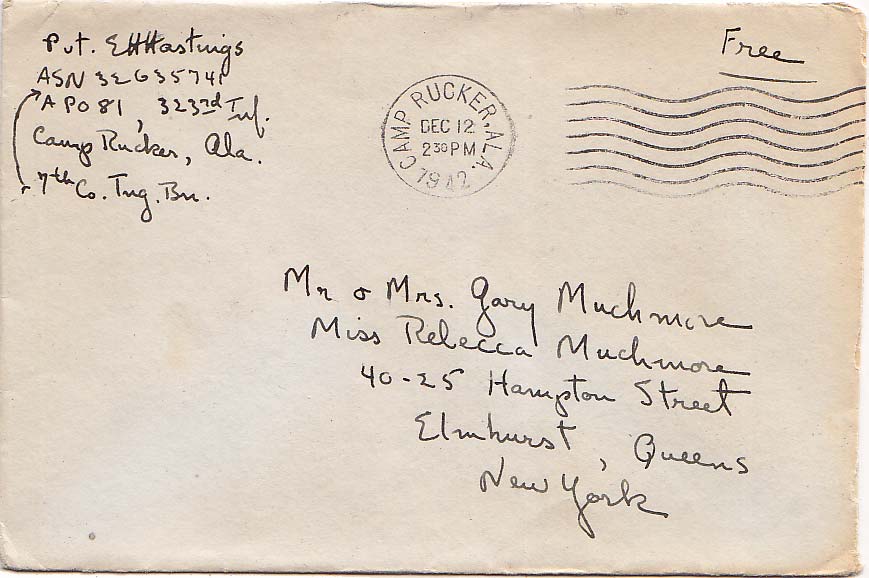 Pvt. EHHastings
ASN 32635741
APO 81, 323rd Inf.
Camp Rucker, Ala.
7th Co. Tng. Bn.
Free
CAMP RUCKER, ALA.
DEC 12
230 PM
1942
Mr & Mrs. Gary Muchmore
Miss Rebecca Muchmore
40-25 Hampton Street
Elmhurst, Queens
New York